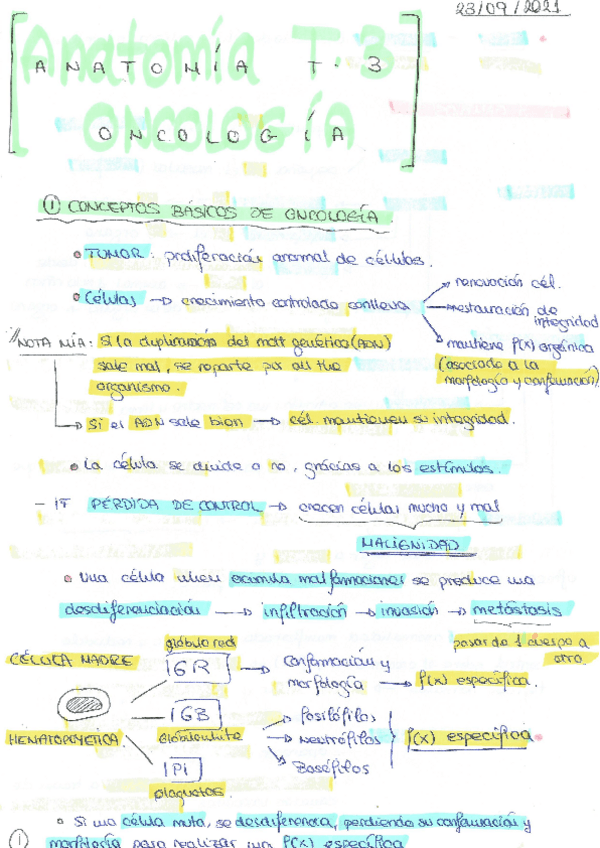 23/09/2021
ANATOMÍA T.3
ONCOLOGÍA
① CONCEPTOS BÁSICOS DE ONCOLOGÍA.
• TUMOR: proliferación anormal de células.
• Células → crecimiento controlado conlleva → renovación cél.
→ restauración de integridad
→ mantiene f(x) orgánica
(asociado a la morfología y conformación)
NOTA MÍA: Si la duplicación del mat genético (ADN)
sale mal, se reparte por all the
organismo.
→ Si el ADN sale bien → cél. mantienen su integridad.
• La célula se divide o no, grácias a los estímulos.
- IF PÉRDIDA DE CONTROL → crecen células mucho y mal
MALIGNIDAD
• Una célula when acumula malformaciones se produce una
desdiferenciación → infiltración → invasión → metástasis
pasar de 1 cuerpo a otro.
CÉLULA MADRE
HEMATOPOYETICA.
glóbulo red
1GR → Conformación y morfología → f(x) específica.
1GB
glóbulo white
→ Neutrófilos
f(x) específica
1Pl
plaquetas.
• Si una célula muta, se desdiferencia, perdiendo su conformación y
morfología para realizar una f(x) específica
①